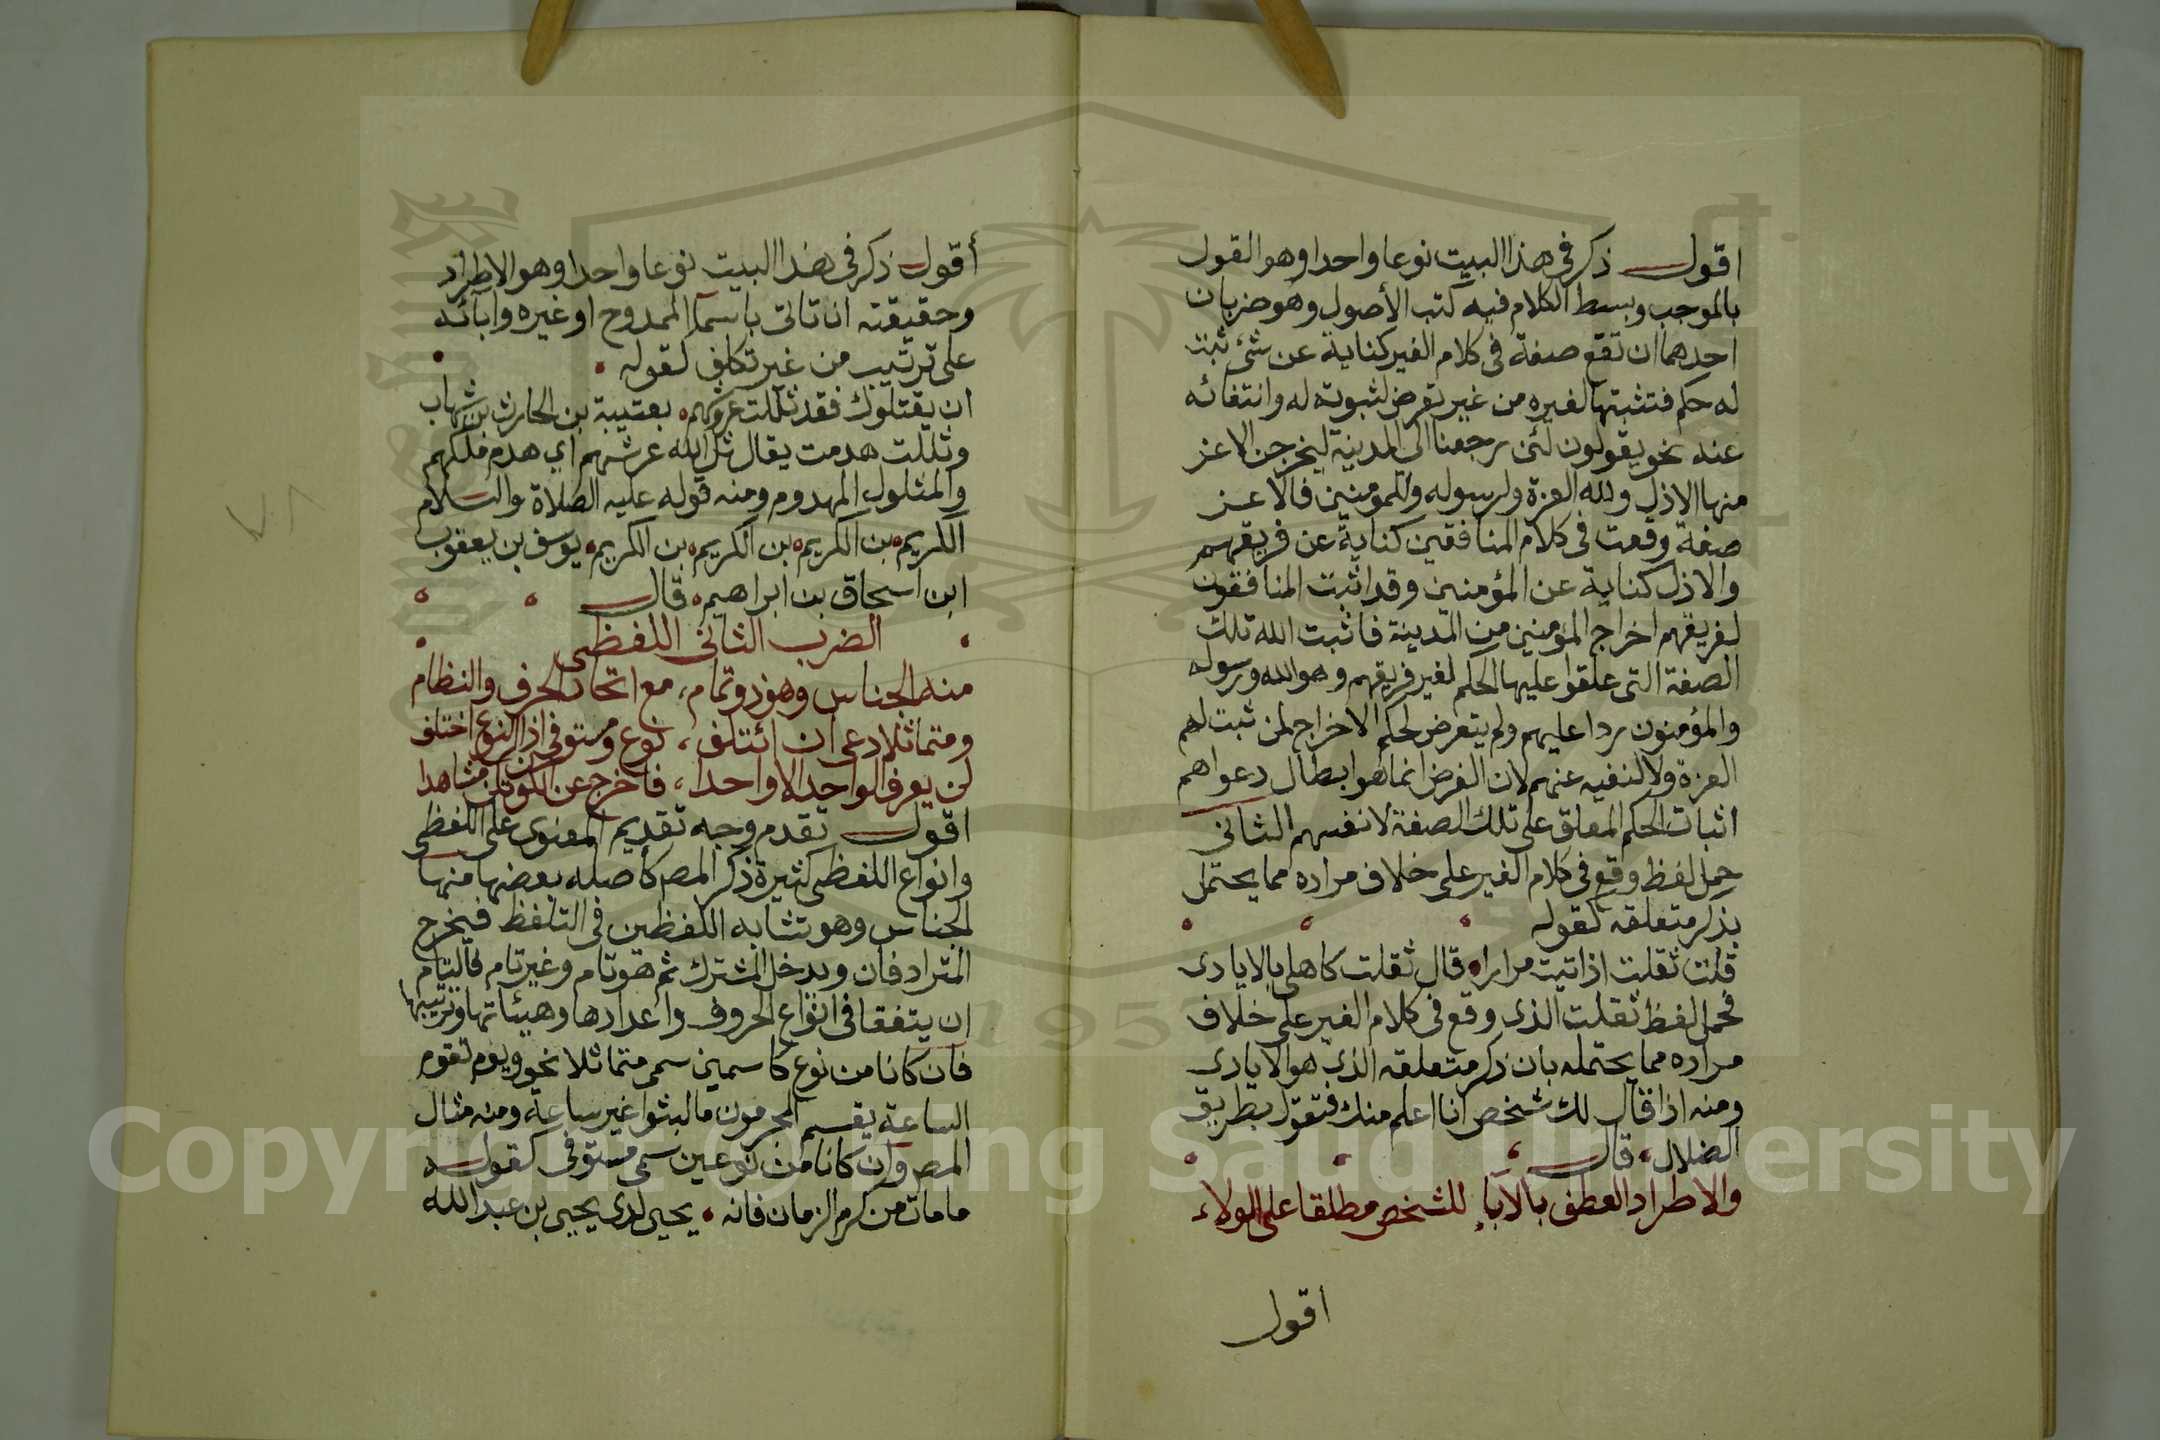 اقول ذكر في هذا البيت نوعا واحدا وهو القول
بالموجب وبسط الكلام فيه كتب الأصول وهو ضربان
احدهما ان تقع صفة في كلام الغير كناية عن شئ ثبت
له حكم فتثبتها لغيره من غير تعرض لثبوته له وانتفائه
عنه نحو يقولون لئن رجعنا الى المدينة ليخرجن الاعز
منها الاذل ولله العزة ولرسوله وللمؤمنين فالاعز
صفة وقعت في كلام المنافقين كناية عن فريقهم
والاذل كناية عن المؤمنين وقد اثبت المنافقون
لفريقهم اخراج المؤمنين من المدينة فاثبت الله تلك
الصفة التى علقوا عليها الحكم لغير فريقهم وهو الله ورسوله
والمؤمنون ردا عليهم ولم يتعرض لحكم الاخراج لمن ثبت لهم
العزة ولا لنفيه عنهم لان الغرض انما هو ابطال دعواهم
اثبات الحكم المعلق على تلك الصفة لانفسهم الثانى
حمل لفظ وقع في كلام الغير على خلاف مراده مما يحتمل
بذكر متعلقه كقوله
قلت ثقلت اذ اتيت مرارا قال ثقلت كاهلى بالايادى
فحمل لفظ ثقلت الذى وقع في كلام الغير على خلاف
مراده مما يحتمله بان ذكر متعلقه الذى هو الايادى
ومنه اذا قال لك شخص انا اعلم منك فتقول بطريق
الضلال قال
والاطراد العطف بالآباء للشخص مطلقا على الولاء
اقول
أقول ذكر في هذا البيت نوعا واحدا وهو الاطراد
وحقيقته ان تاتى باسماء الممدوح او غيره وابائه
على ترتيب من غير تكلف كقوله
ان يقتلوك فقد ثللت عروشهم بعتيبة بن الحارث بن شهاب
وثللت هدمت يقال ثل الله عرشهم اي هدم ملكهم
والمثلول المهدوم ومنه قوله عليه الصلاة والسلام
الكريم بن الكريم بن الكريم بن الكريم يوسف بن يعقوب
ابن اسحاق بن ابراهيم قال
الضرب الثاني اللفظى
منه الجناس وهو ذو تمام، مع اتحاد الحرف والنظام
ومتماثلا دعى ان ائتلف، نوع ومستوفى اذا النوع اختلف
لن يعرف الواحد الا واحدا، فاخرج عن الكون تكن مشاهدا
اقول تقدم وجه تقديم المعنوى على اللفظى
وانواع اللفظى كثيرة ذكر المص كأصله بعضها منها
الجناس وهو تشابه اللفظين في التلفظ فيخرج
المترادفان ويدخل المشترك ثم هو تام وغير تام فالتام
ان يتفقا في انواع الحروف واعدادها وهيئاتها وترتيبها
فان كانا من نوع كاسمين سمى متماثلا نحو ويوم تقوم
الساعة يقسم المجرمون ما لبثوا غير ساعة ومنه مثال
المص وان كانا من نوعين سمى مستوفى كقوله
ما مات من كرم الزمان فانه يحيى لدى يحيى بن عبدالله
Copyright © King Saud University
1957